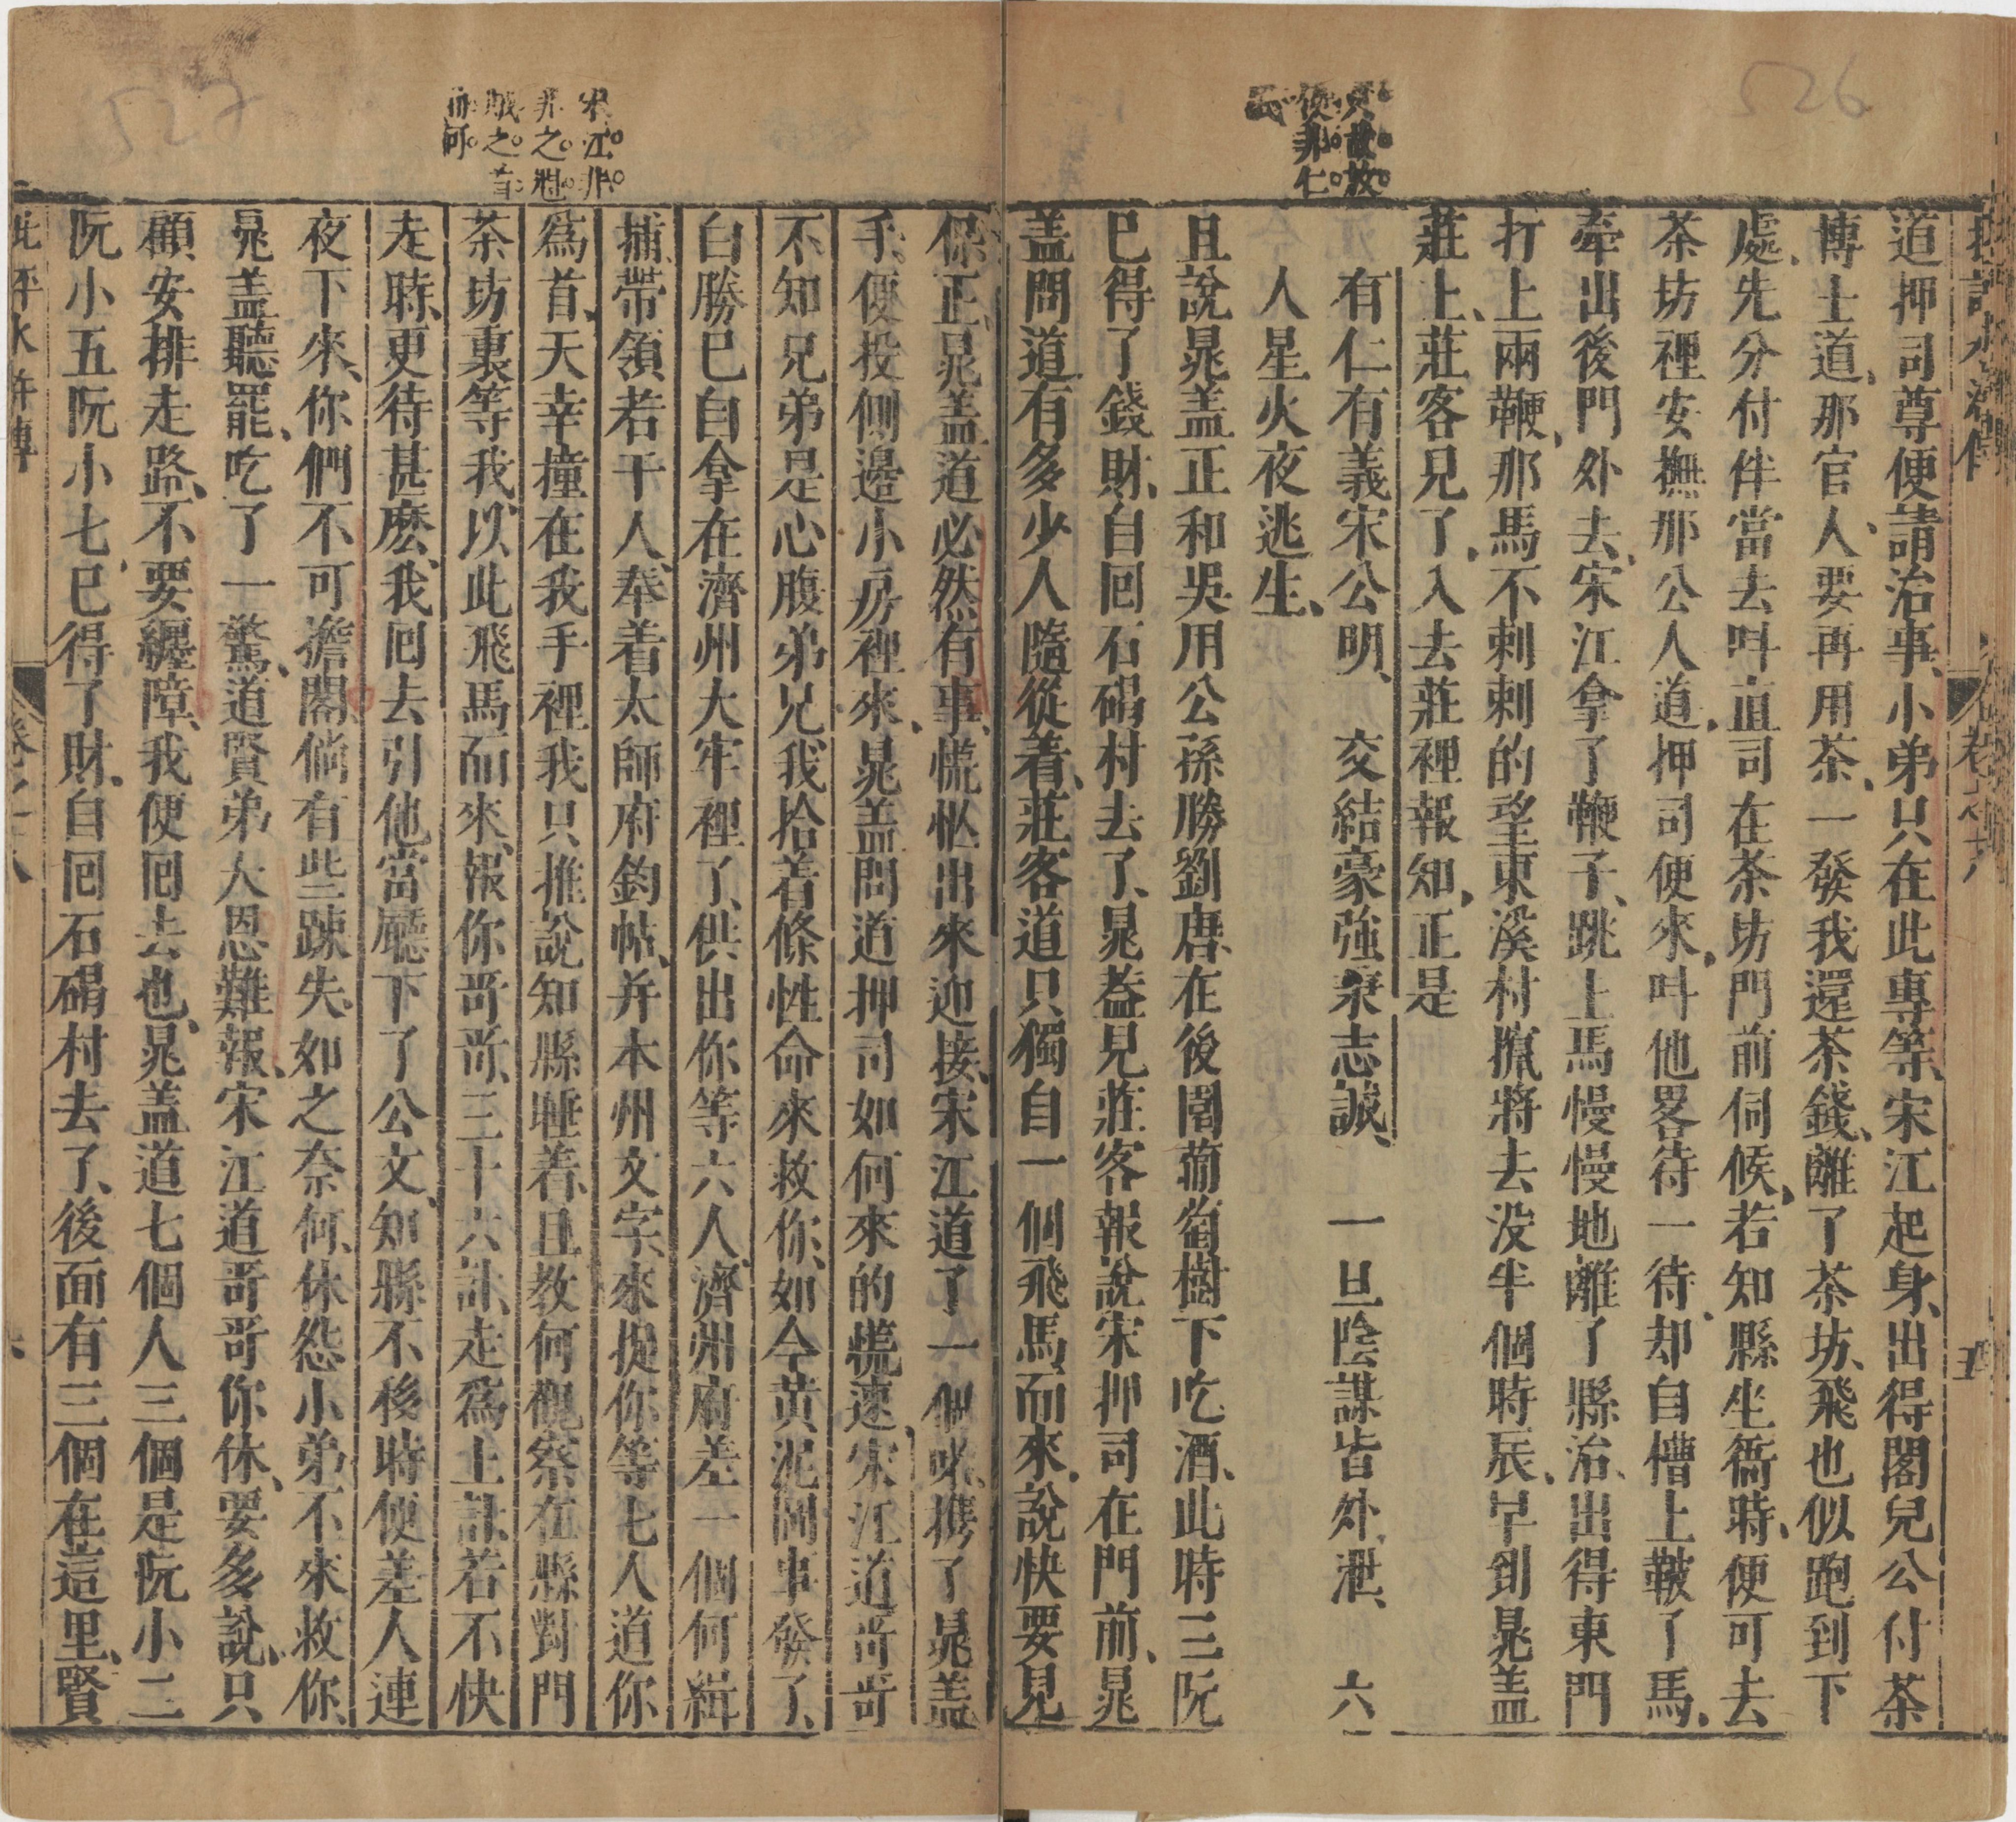 526
批評水滸傳
卷之十八
五
道押司尊便請治事小弟只在此專等宋江起身出得閣兒分付茶
博士道那官人要再用茶一發我還茶錢離了茶坊飛也似跑到下
處先分付伴當去呌直司在茶坊門前伺候若知縣坐衙時便可去
茶坊裡安撫那公人道押司便來呌他畧待一待却自槽上鞁了馬
牽出後門外去宋江拿了鞭子跳上馬慢慢地離了縣治出得東門
打上兩鞭那馬不剌剌的望東溪村攛將去没半個時辰早到晁盖
莊上莊客見了入去莊裡報知正是
有仁有義宋公明、 交結豪強秉志誠、 一旦陰謀皆外泄、 六
人星火夜逃生、
且說晁盖正和吳用公孫勝劉唐在後園葡萄樹下吃酒此時三阮
已得了錢財自回石碣村去了晁葢見莊客報說宋押司在門前晁
盖問道有多少人隨從着莊客道只獨自一個飛馬而來說快要見
527
宋江非
非之魁
賊之首
而何
保正晁盖道必然有事慌忙出來迎接宋江道了一個喏携了晁盖
手便投側邊小房裡來晁盖問道押司如何來的慌速宋江道哥哥
不知兄弟是心腹弟兄我拾着條性命來救你如今黄泥岡事發了
白勝已自拿在濟州大牢裡了供出你等六人濟州府差一個何緝
捕帶領若干人奉着太師府鈞帖并本州文字來捉你等七人道你
爲首天幸撞在我手裡我只推說知縣睡着且教何觀察在縣對門
茶坊裏等我以此飛馬而來報你哥哥三十六計走爲上計若不快
走時更待甚麽我回去引他當廳下了公文知縣不移時便差人連
夜下來你們不可擔閣倘有些踈失如之奈何休怨小弟不來救你
晁盖聽罷吃了一驚道賢弟大恩難報宋江道哥哥你休要多說只
顧安排走路不要纏障我便回去也晁盖道七個人三個是阮小二
阮小五阮小七已得了財自回石碣村去了後面有三個在這里賢
批評水滸傳
卷之十八